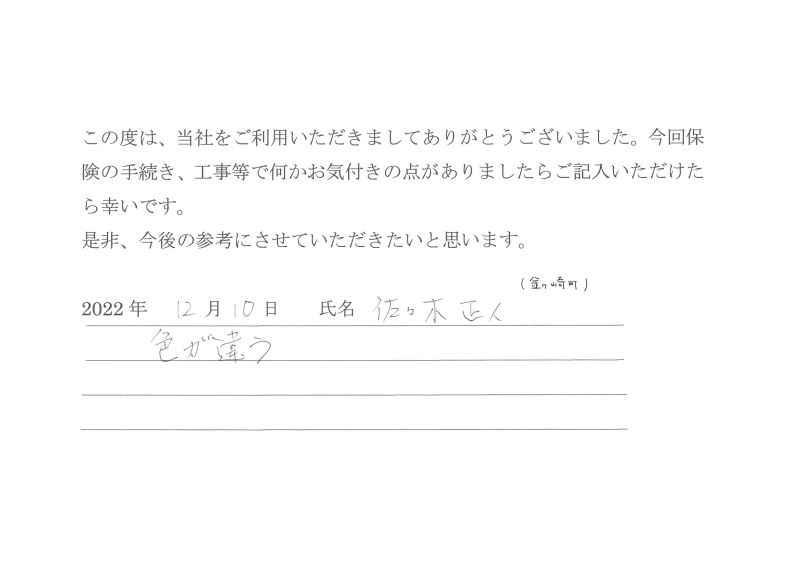 この度は、当社をご利用いただきましてありがとうございました。今回保
険の手続き、工事等で何かお気付きの点がありましたらご記入いただけた
ら幸いです。
是非、今後の参考にさせていただきたいと思います。
(金ヶ崎町)
2022年 12月10日 氏名 佐々木 正人
色が違う